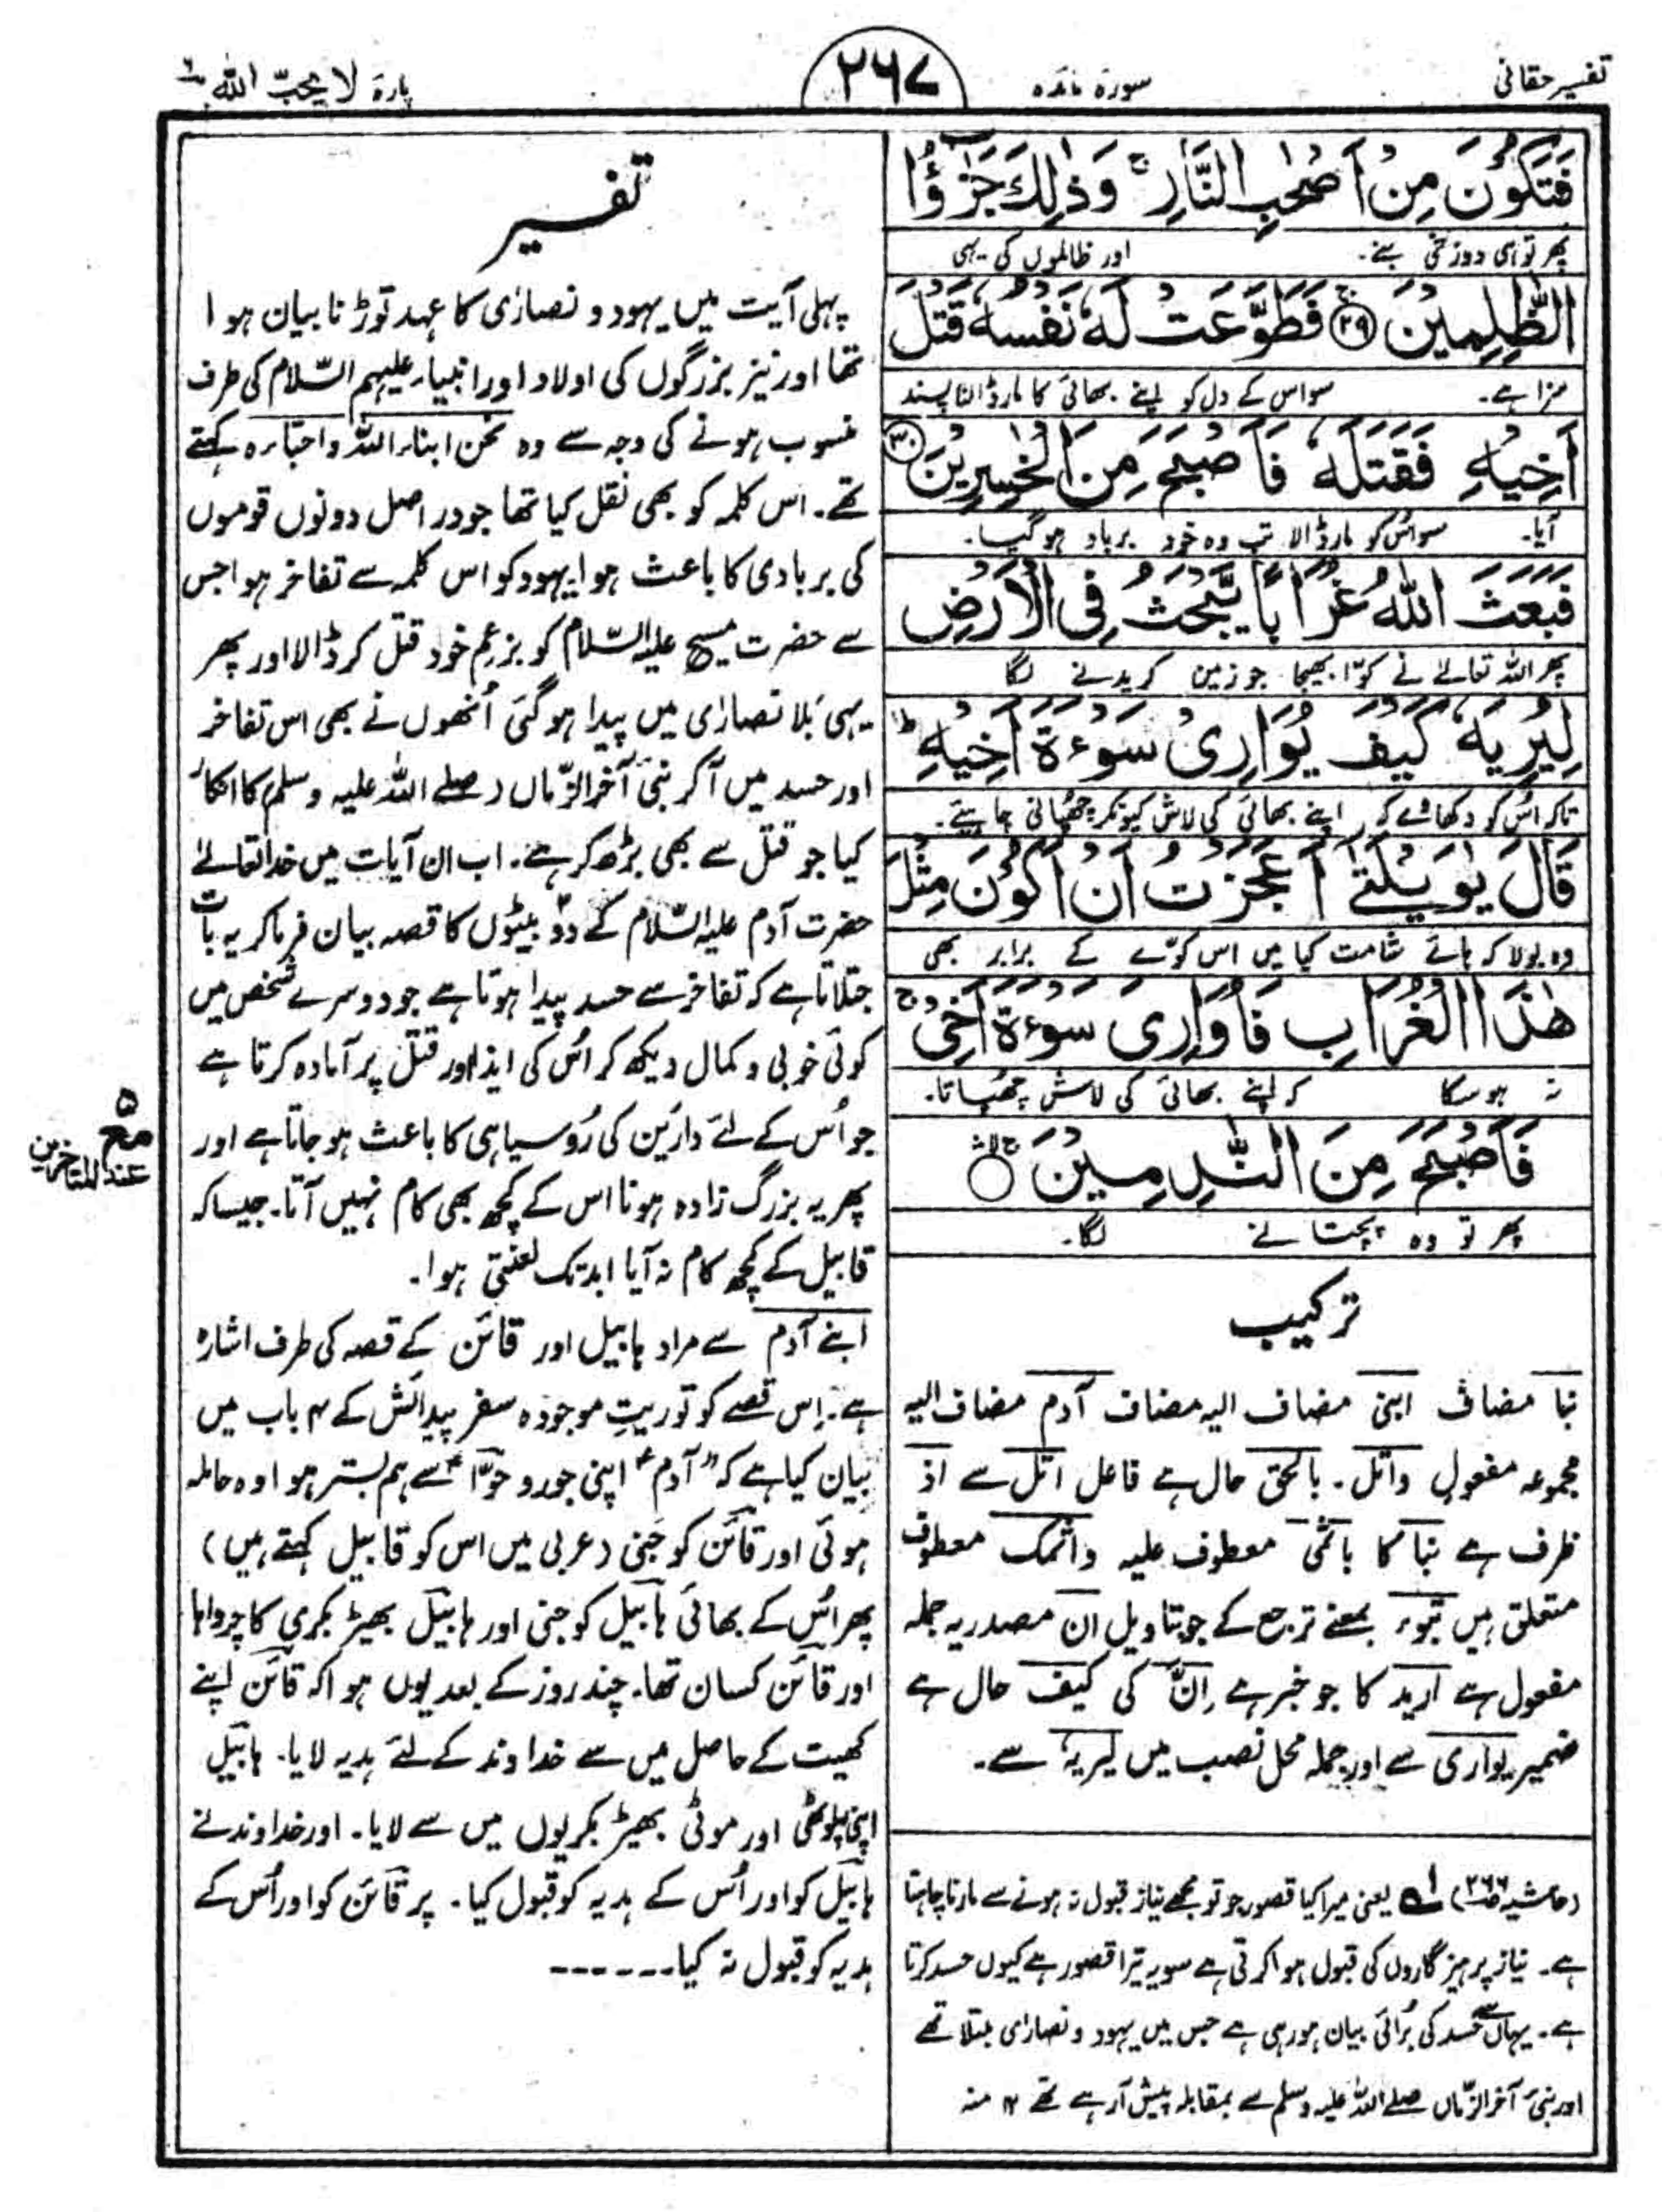 تفسیر حقانی
سورہ مائدہ
۲۶۷
پارہ لا یحبّ اللہ ۶
فَتَكُوْنَ مِنْ اَصْحٰبِ النَّارِ ۚ وَذٰلِكَ جَزٰٓؤُا
پھر تو ہی دوزخی بنے۔ اور ظالموں کی یہی
الظّٰلِمِيْنَ ﴿۲۹﴾ فَطَوَّعَتْ لَهٗ نَفْسُهٗ قَتْلَ
سزا ہے۔ سو اس کے دل کو اپنے بھائی کا مار ڈالنا پسند
اَخِيْهِ فَقَتَلَهٗ فَاَصْبَحَ مِنَ الْخٰسِرِيْنَ ﴿۳۰﴾
آیا۔ سو اُس کو مار ڈالا تب وہ خود برباد ہو گیا۔
فَبَعَثَ اللّٰهُ غُرَابًا يَّبْحَثُ فِي الْاَرْضِ
پھر اللہ تعالےٰ نے کوّا بھیجا جو زمین کریدنے لگا
لِيُرِيَهٗ كَيْفَ يُوَارِيْ سَوْءَةَ اَخِيْهِ ؕ
تاکہ اُس کو دکھائے کہ اپنے بھائی کی لاش کیونکر چھپانی چاہیئے۔
قَالَ يٰوَيْلَتٰٓى اَعَجَزْتُ اَنْ اَكُوْنَ مِثْلَ
وہ بولا کہ ہائے شامت کیا میں اس کوّے کے برابر بھی
هٰذَا الْغُرَابِ فَاُوَارِيَ سَوْءَةَ اَخِيْ ۚ
نہ ہو سکا کہ اپنے بھائی کی لاش چھپاتا۔
فَاَصْبَحَ مِنَ النّٰدِمِيْنَ
پھر تو وہ پچتانے لگا۔
ترکیب
نبأ مضاف ابنی مضاف الیہ مضاف آدم مضاف الیہ
مجموعہ مفعول واتل۔ بالحق حال ہے فاعل اتل سے اذ
ظرف ہے نبأ کا باثمی معطوف علیہ واثمک معطوف
متعلق ہیں تبوء بمعنے ترجع کے جو بتاویل ان مصدریہ جملہ
مفعول ہے ارید کا جو خبر ہے اِنّ کی کیف حال ہے
ضمیر یواری سے اور جملہ محل نصب میں لیریہ سے۔
(حاشیہ صفحہ ۲۶۶) ۱ے یعنی میرا کیا قصور جو تو مجھے نیاز قبول نہ ہونے سے مارنا چاہتا
ہے۔ نیاز پرہیزگاروں کی قبول ہوا کرتی ہے سو یہ تیرا قصور ہے کیوں حسد کرتا
ہے۔ یہاں سے حسد کی بُرائی بیان ہو رہی ہے جس میں یہود و نصارٰی مبتلا تھے
اور نبی آخر الزّماں صلے اللہ علیہ وسلم سے بمقابلہ پیش آ رہے تھے ۱۲ منہ
تفسیر
پہلی آیت میں یہود و نصارٰی کا عہد توڑنا بیان ہوا
تھا اور نیز بزرگوں کی اولاد اور انبیاء علیہم السّلام کی طرف
منسوب ہونے کی وجہ سے وہ نحن ابناء اللہ واحباءہ کہتے
تھے۔ اس کلمہ کو بھی نقل کیا تھا جو در اصل دونوں قوموں
کی بربادی کا باعث ہوا یہود کو اس کلمہ سے تفاخر ہوا جس
سے حضرت مسیح علیہ السّلام کو بزعم خود قتل کر ڈالا اور پھر
یہی بَلا نصارٰی میں پیدا ہو گئی اُنھوں نے بھی اس تفاخر
اور حسد میں آ کر نبی آخر الزّماں (صلے اللہ علیہ وسلم) کا انکار
کیا جو قتل سے بھی بڑھ کر ہے۔ اب ان آیات میں خدا تعالےٰ
حضرت آدم علیہ السّلام کے دو بیٹوں کا قصہ بیان فرما کر یہ بات
جتلاتا ہے کہ تفاخر سے حسد پیدا ہوتا ہے جو دوسرے شخص میں
کوئی خوبی و کمال دیکھ کر اُس کی ایذا اور قتل پر آمادہ کرتا ہے
جو اُس کے لئے دارَین کی رُوسیاہی کا باعث ہو جاتا ہے اور
پھر یہ بزرگ زادہ ہونا اس کے کچھ بھی کام نہیں آتا۔ جیسا کہ
قابیل کے کچھ کام نہ آیا ابد تک لعنتی ہوا۔
ابنے آدم سے مراد ہابیل اور قائن کے قصہ کی طرف اشارہ
ہے۔ اِس قصے کو توریتِ موجودہ سفر پیدائش کے ۴ باب میں
بیان کیا ہے کہ "آدمؑ اپنی جورو حوّاؑ سے ہم بستر ہوا وہ حاملہ
ہوئی اور قائن کو جَنی (عربی میں اس کو قابیل کہتے ہیں)
پھر اُس کے بھائی ہابیل کو جنی اور ہابیل بھیڑ بکری کا چرواہا
اور قائن کسان تھا۔ چند روز کے بعد یوں ہوا کہ قائن اپنے
کھیت کے حاصل میں سے خداوند کے لئے ہدیہ لایا۔ ہابیل
اپنی پلوٹھی اور موٹی بھیڑ بکریوں میں سے لایا۔ اور خداوند نے
ہابیل کو اور اُس کے ہدیہ کو قبول کیا۔ پر قائن کو اور اُس کے
ہدیہ کو قبول نہ کیا۔------
۵
مع
عند المتاخرین